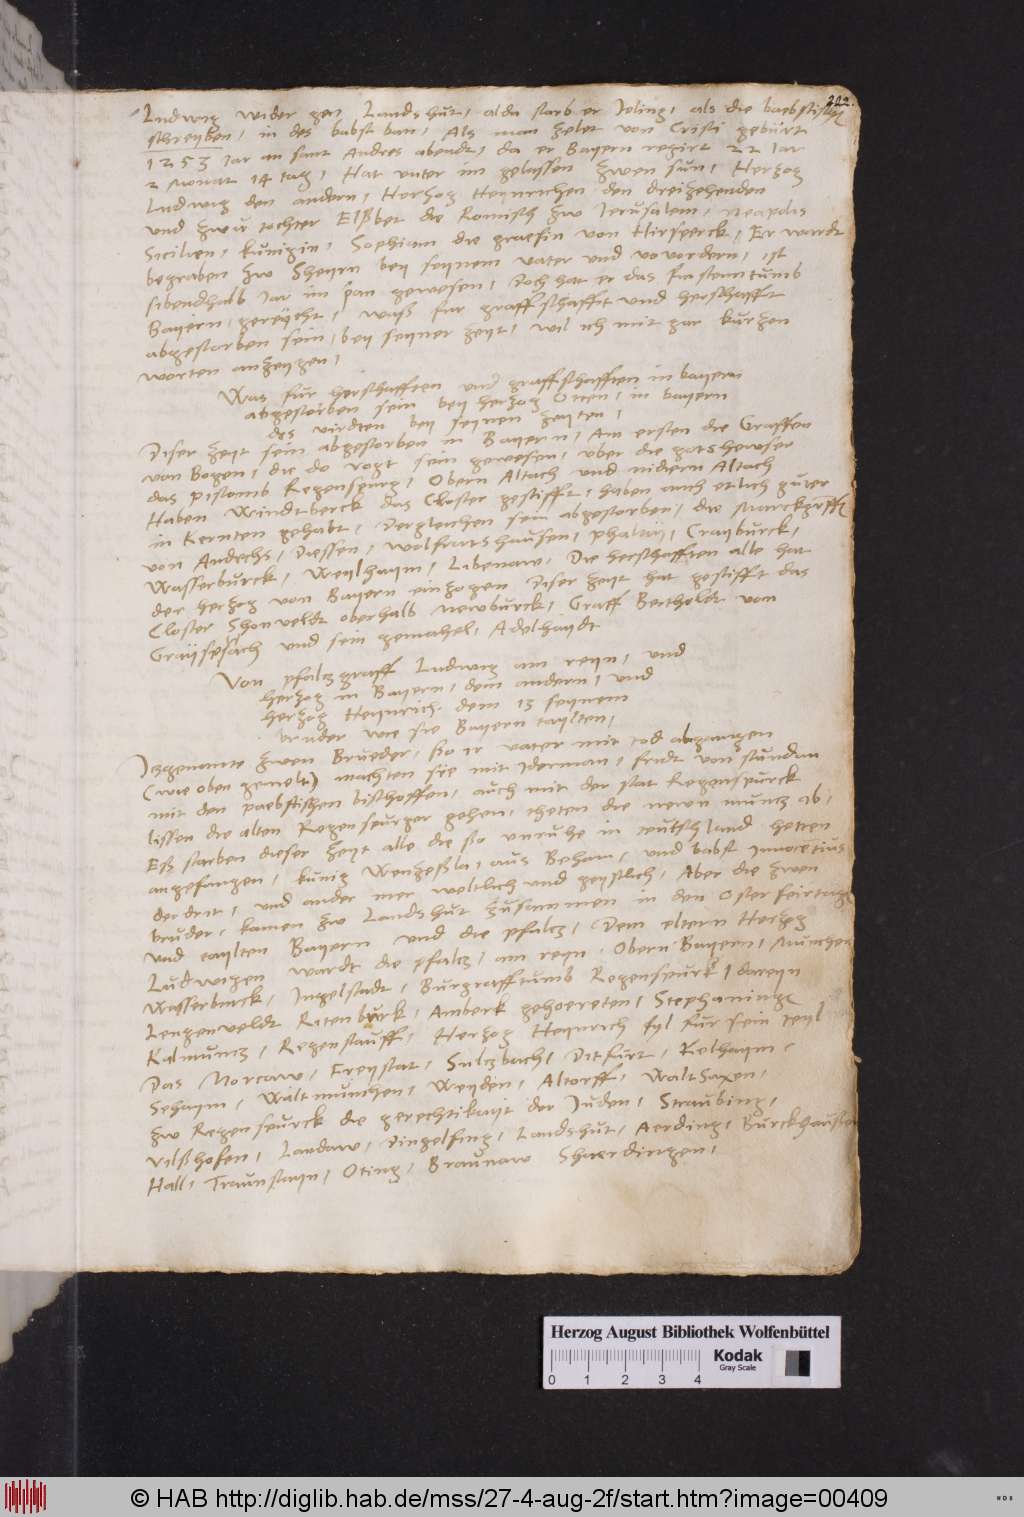 202.
Ludwig wider gen Landshut, alda starb er Jeling, als die baebstischen
schreyben, in des babst ban, Als man zelet von Cristi geburt
1253 Jar an sant Andres abendt, da er Bayern regirt 22 Jar
2 Monat 14 tag, Hat unter im gelassen zwen sun, Herzog
Ludwig den andern, Herzog Heynrichen den dreizehenden
und zwu tochter Elsbet die Romisch zw Jerusalem, Neapolis
Sicilien, kunigin, Sophiam die graefin von Hirsperck, Er wardt
begraben zw Sheyrn bey seynem vater und vovordern, ist
sibendhalb Jar im pan gewesen, Doch hat er das fürstenntumb
Bayern, gereycht, waß fur graffschafft und herschafft
abgestorben sein, bey seyner zeyt, wil ich mit gar kurzen
worten anzeygen,
Was fur herschafften und graffschafften in bayern
abgestorben sein bey herzog Otten, in bayern
des virdten bey seynen zeyten,
Diser zeyt sein abgestorben in Bayern, Am ersten die Graffen
von Bogen, die do vogt sein gewesen, über die gotshewser
das pistomb Regenspurg, Obern Altach und nidern Altach
Haben Windtberck das Closter gestifft, haben auch etlich güter
in Kernten gehabt, Dergleichen sein abgestorben, die Marckgraffen
von Andechs, Diessen, Wolfratshausen, Crayburck,
Wasserburck, Weylhaym, Libenaw, Die herschafften alle hat
der herzog von Bayern einzogen Diser zeyt hat gestifft das
Closter Shonveldt oberhalb newburck, Graff Bertholdt von
Graysbach und sein gemahel, Adelhaydt
Von pfalczgraff Ludwig am reyn, und
herzog in Bayern, dem andern, und
herzog Heynrich dem 13 seynem
bruder wie sie Bayern taylten,
Izgenante zwen Brueder, so ir vater mit tod abgangen
(wie oben gemelt) machten sie mit Iderman, fridt von stundan
mit den paebstischen bischoffen, auch mit der stat Regenspurck
lissen die alten Regenspurger gehen, theten die newn muncz ab,
Eß starben dieser zeyt alle die so unruhe in teutschland hetten
angefangen, kunig Wenzeßla, aus Beham, und babst Innocetius
der drit, und ander mer weltlich und geystlich, Aber die zwen
bruder, kamen zw Landshut zusammen in den Osterfeirtagen
und taylten Bayern und die pfalcz, Dem eltern Herzog
Ludwigen wardt die pfalcz, am reyn, Obern Bayern, Munchen
Wasserburck, Ingelstadt, Burgrafftumb Regenspurk, dareyn
Lengenveldt Ratenburk, Amberk gehoereten, Stephaninge
Kalmuncz, Regenstauff, Herzog Heynrich fyl fur sein teyl
Das Norcaw, Freystat, Sulczbach, Ditfurt, Kelhaym,
Sehaym, Waltmunchen, Weyden, Altorff, Waltsaxen,
zw Regenspurck die gerechtikayt der Juden, Straubing,
vilßhofen, Landaw, Dingelfing, Landshut, Aerding, Burckhausen
Hall, Traunstayn, Oting, Braunaw Shaerdingen,
Herzog August Bibliothek Wolfenbüttel
Kodak
Gray Scale
0 1 2 3 4
© HAB http://diglib.hab.de/mss/27-4-aug-2f/start.htm?image=00409